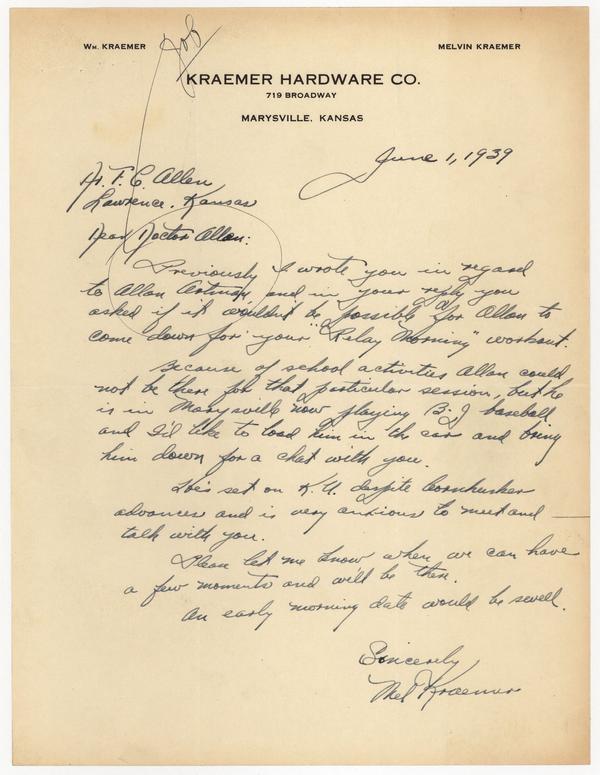 Wm. KRAEMER
Job
MELVIN KRAEMER
KRAEMER HARDWARE CO.
719 BROADWAY
MARYSVILLE, KANSAS
June 1, 1939
Dr. F. C. Allen
Lawrence, Kansas
Dear Doctor Allen:
Previously I wrote you in regard
to Allan Artman, and in your reply you
asked if it wouldn't be possible for Allan to
come down for your "Relay Morning" workout.
Because of school activities Allan could
not be there for that particular session, but he
is in Marysville now playing B-J baseball
and I'd like to load him in the car and bring
him down for a chat with you.
He's set on K.U. despite Cornhusker
advances and is very anxious to meet and
talk with you.
Please let me know when we can have
a few moments and we'll be there.
An early morning date would be swell.
Sincerely
Mel Kraemer